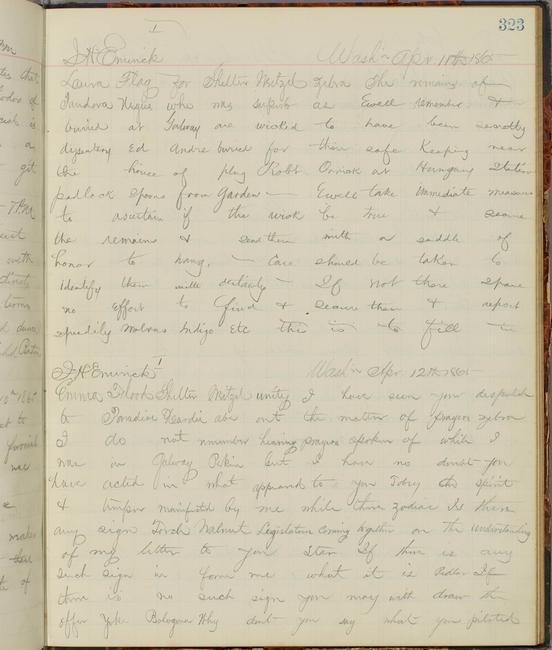 323
1
J H Emerick Wash'n Apr 11th 1865
Laura Flag for Shelter Mitzel Zebra The remains of
Pandora who was superb as Ewell remember &
buried at Galway are wicked to have been secretly
dysentery Ed Andre buried for their safe keeping near
the house of play Robt Orrick at Hungary Station
padlock spoons from Garden — Ewell take immediate measures
to ascertain if the wick be true & secure
the remains & send them with a saddle of
honor to hang. — Care should be taken to
identify them mille certainly — If not there spare
no effort to find & secure them & report
speedily Walrus Indigo Etc this is to fill in
J H Emerick 1 Wash'n Apr 12th 1865
Emma Flood Shelter Mitzel unity I have seen your despatch
to Paradise Heardie abe out the matter of prayers zebra
I do not remember hearing prayers spoken of while I
was in Galway Pekin but I have no doubt you
have acted in what appeared to you Toby the spirit
& temper manifested by me while there zodiac Is there
any sign Torch Walnut Legislature coming together on the understanding
of my letter to you Stan If there is any
such sign in form me what it is Pedlar If
there is no such sign you may with draw the
offer Yoke Bologna Why don't you say what you